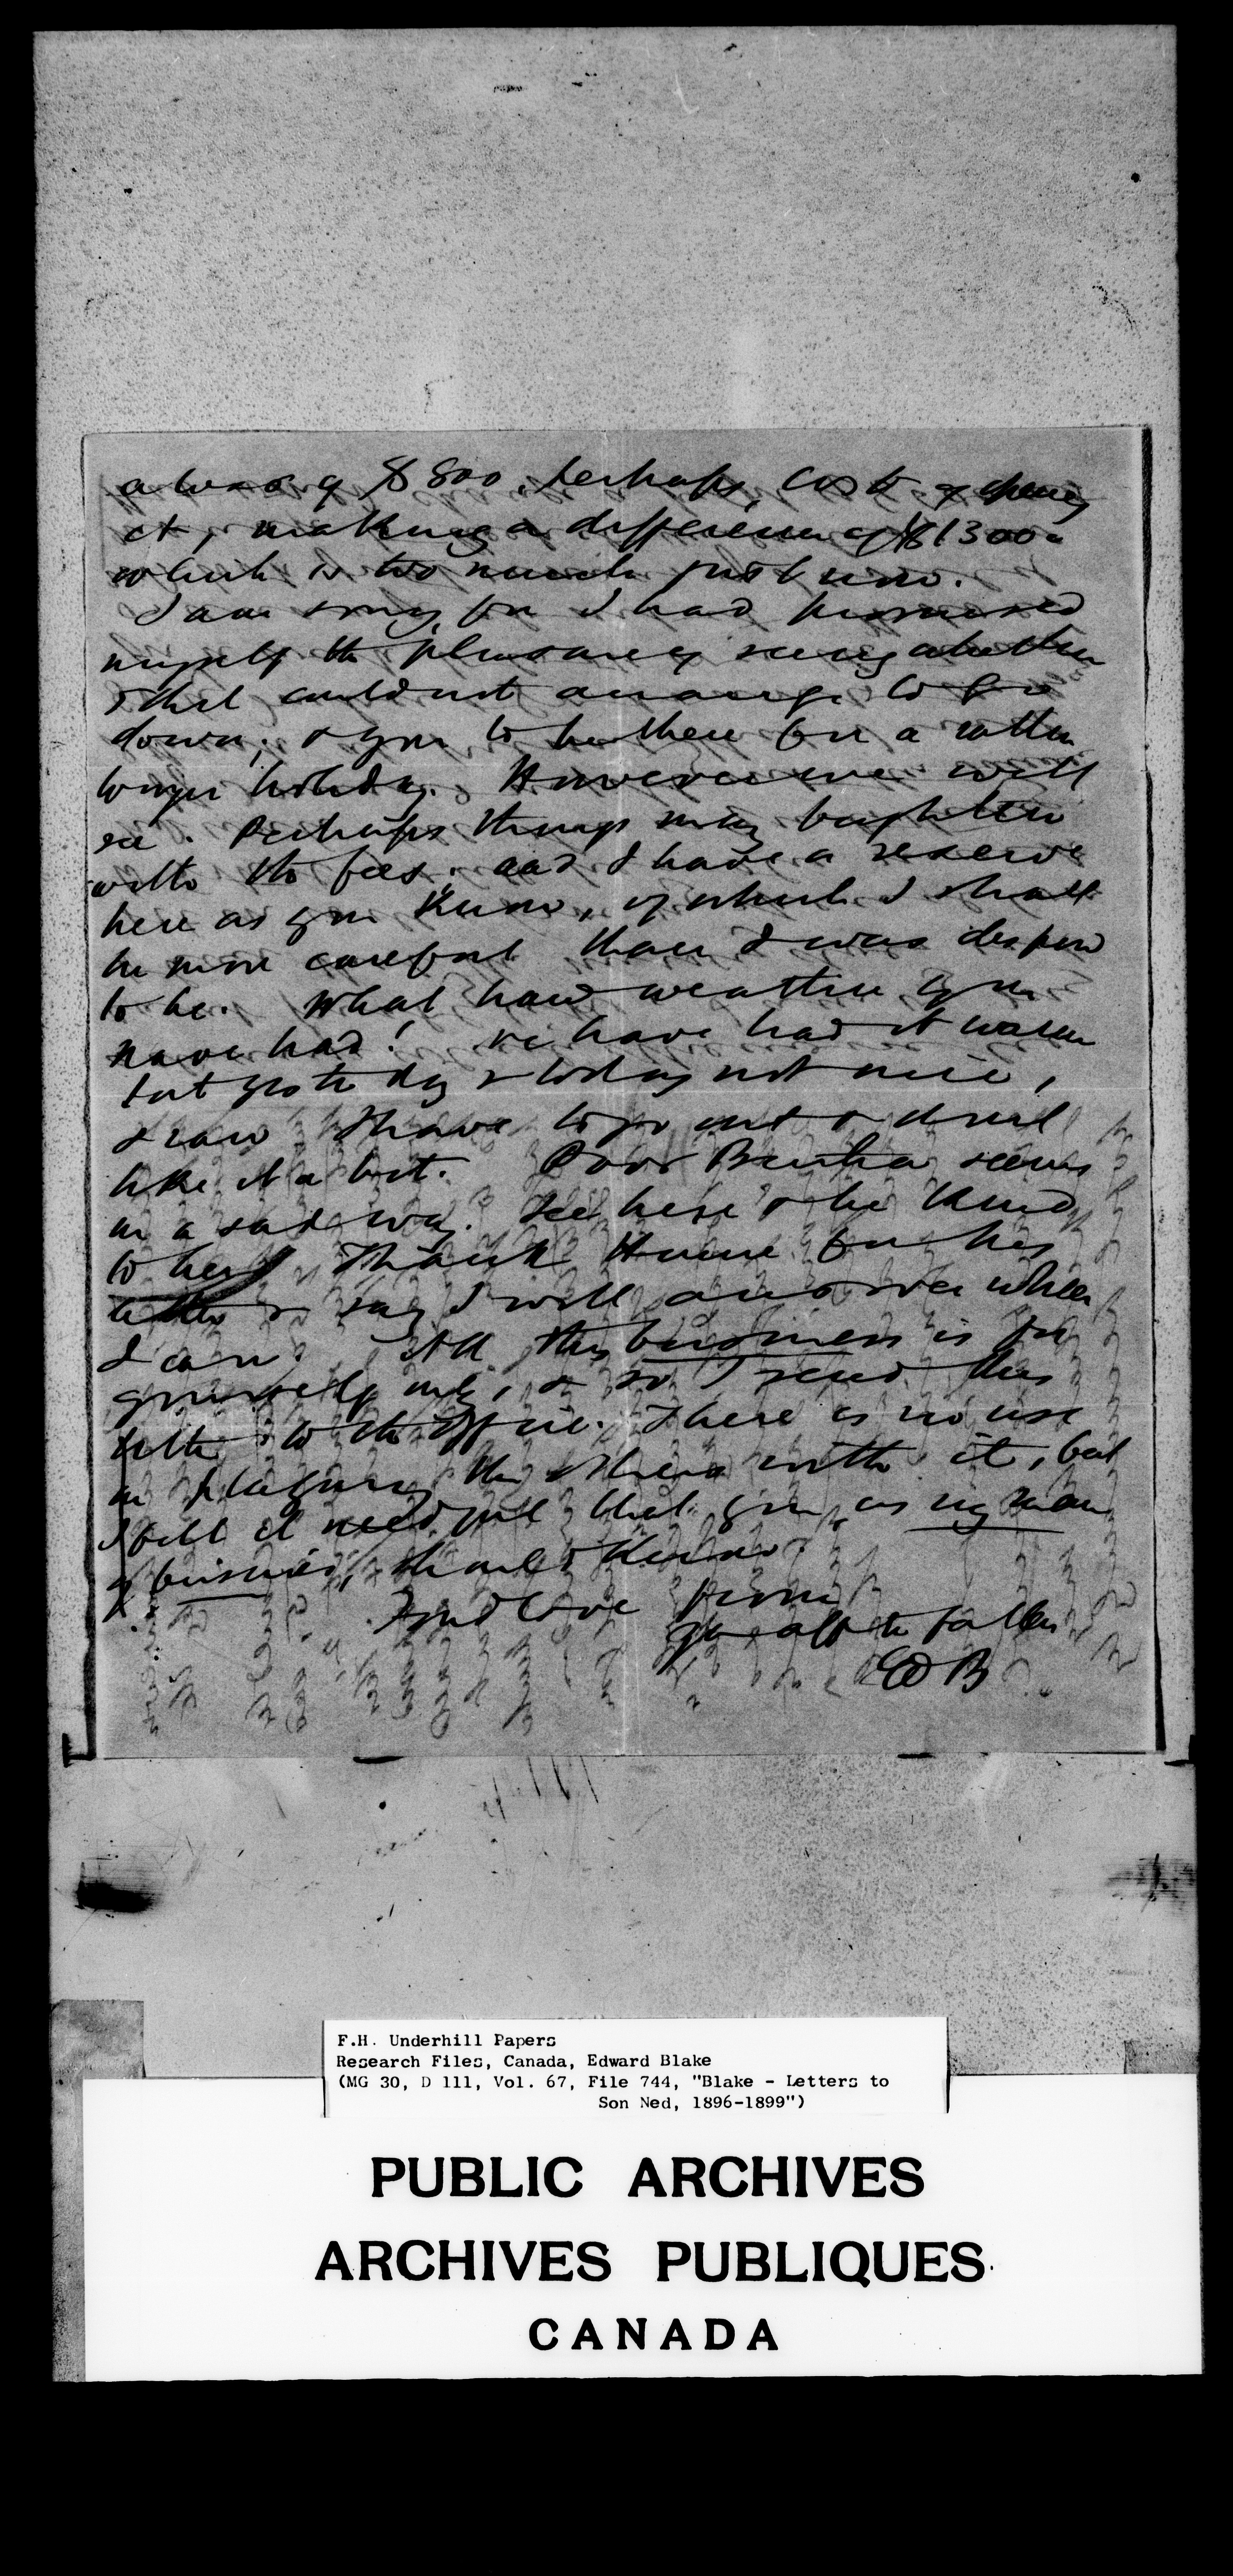 a loss of $800, perhaps, cost of opening
it, making a difference of $1300
which is too much just now.
I am sorry, for I had promised
myself the pleasure of seeing whether
Ethel could not arrange to go
down; & you to be there for a rather
longer holiday. However we will
see. Perhaps things may brighten
with the fees. and I have a reserve
here as you know, of which I shall
be more careful than I was disposed
to be. What hard weather you
have had! We have had it warm
but yesterday & today not nice,
& raw I have to go out & don't
like it a bit. Poor Bertha seems
in a sad way. See her & be kind
to her! Thank Hume for his
letter & say I will answer when
I can. All this business is for
yourself only, & so I send this
letter to the office. There is no use
in plaguing the others with it, but
I felt it needful that you, as my man
of business, should know.
Fond love from
yr affte father
EB
F.H. Underhill Papers
Research Files, Canada, Edward Blake
(MG 30, D 111, Vol. 67, File 744, "Blake - Letters to
Son Ned, 1896-1899")
PUBLIC ARCHIVES
ARCHIVES PUBLIQUES
CANADA